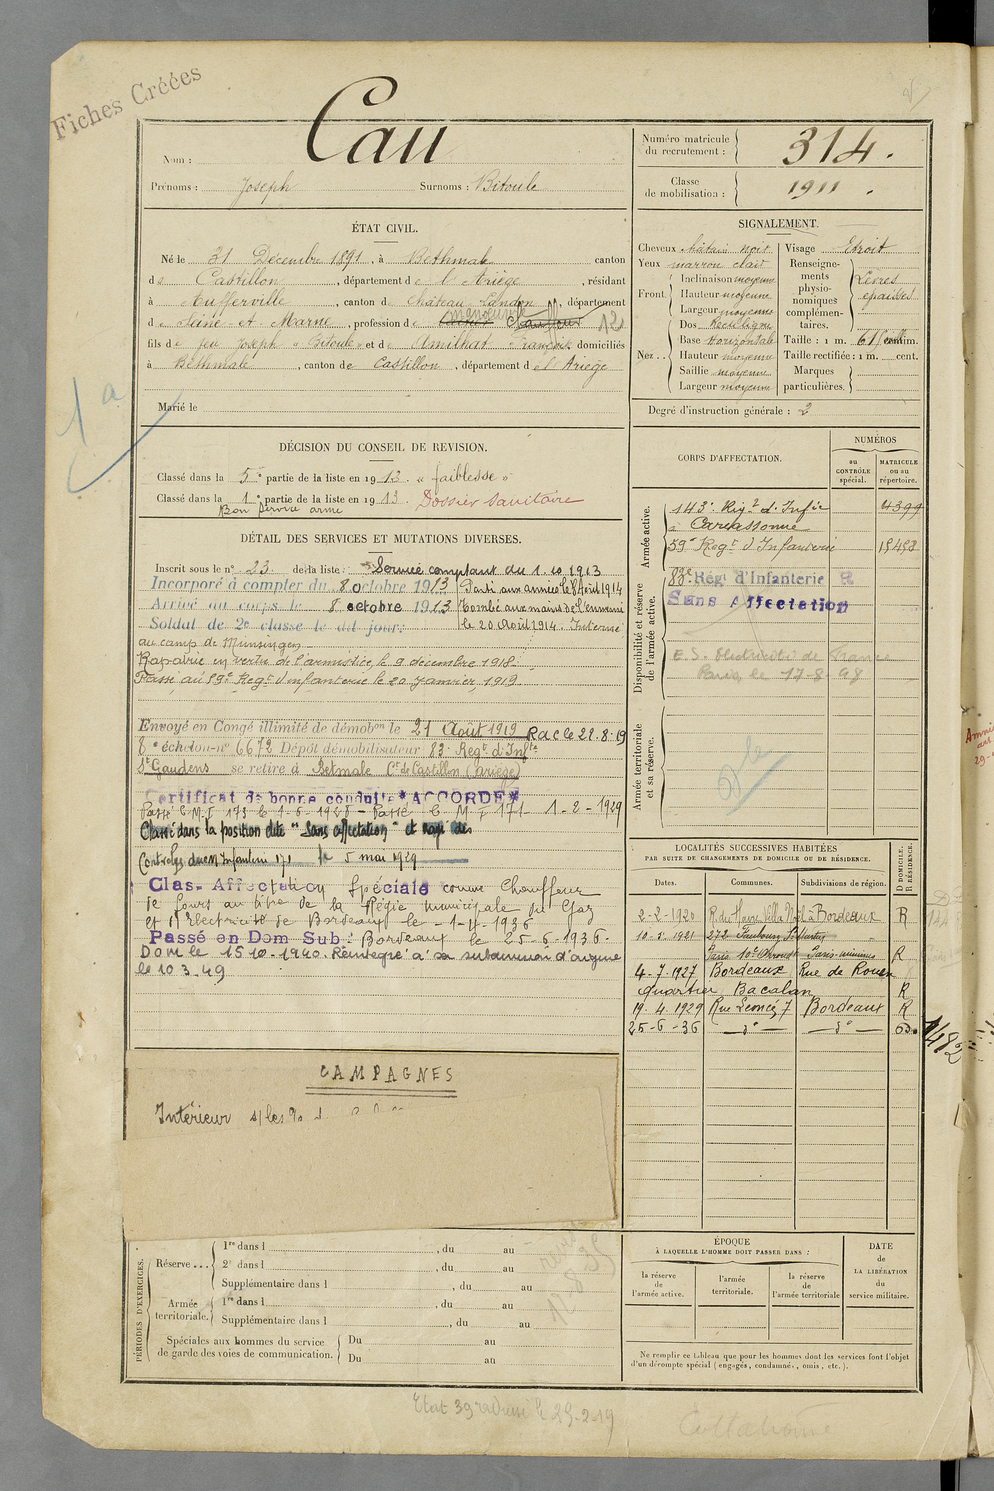 Fiches Créées
Nom : Cau
Prénoms : Joseph Surnoms : Bitoule
Numéro matricule du recrutement : 314.
Classe de mobilisation : 1911.
ÉTAT CIVIL.
Né le 31 Décembre 1891, à Bethmale canton
de Castillon, département de l'Ariège, résidant
à Aufferville, canton de Château Landon, département
de Seine-et-Marne, profession de manœuvre Chauffeur 12
fils de feu Joseph "Bitoule" et de Amilhat Françoise domiciliés
à Bethmale, canton de Castillon, département de l'Ariège
Marié le
1a
SIGNALEMENT.
Cheveux châtain noir
Yeux marron clair
Front : Inclinaison moyenne
Hauteur moyenne
Largeur moyenne
Nez : Dos Rectiligne
Base horizontale
Hauteur moyenne
Saillie moyenne
Largeur moyenne
Visage Etroit
Renseignements physionomiques complémentaires. Lèvres épaisses
Taille : 1 m. 61 centim.
Taille rectifiée : 1 m. cent.
Marques particulières.
Degré d'instruction générale : 2
DÉCISION DU CONSEIL DE REVISION.
Classé dans la 5e partie de la liste en 1913. "faiblesse"
Classé dans la 1e partie de la liste en 1913. Dossier sanitaire
Bon service armé
DÉTAIL DES SERVICES ET MUTATIONS DIVERSES.
Inscrit sous le n° 23 de la liste : Service comptant du 1.10.1913
Incorporé à compter du 8 octobre 1913 Parti aux armées le 8 Août 1914
Arrivé au corps le 8 octobre 1913 tombé aux mains de l'ennemi
Soldat de 2e classe le dit jour. le 20 Août 1914. Interné
au camp de Münsingen
Rapatrié en vertu de l'armistice, le 9 décembre 1918.
Passé au 59e Regt d'infanterie le 20 Janvier 1919
Envoyé en Congé illimité de démobon le 21 Août 1919 R a c le 28.8.19
8e échelon-n° 6672 Dépôt démobilisateur 83e Regt d'Infte
St Gaudens se retire à Betmale Cn de Castillon (Ariège)
Certificat de bonne conduite "ACCORDÉ"
Passé C.M.I 173 le 1-6-1928 - Passé C.M.I 171 1-2-1929
Classé dans la position dite "Sans affectation" et rayé des
Controles du CM Infanterie 171 le 5 mai 1929
Clas. Affectation Spéciale comme Chauffeur
de fours au titre de la Régie municipale du Gaz
et d'Electricité de Bordeaux le -1-4-1936
Passé en Dom Sub. Bordeaux le 25-6-1936.
Dom le 15 10-1940. Réintégré à sa subdivision d'origine
le 10 3.49
CORPS D'AFFECTATION.
NUMÉROS
au CONTRÔLE spécial.
MATRICULE ou au répertoire.
Armée active.
143e Regt d'Infie 4399
à Carcassonne
59e Regt d'Infanterie 15493
Disponibilité et réserve de l'armée active.
83e Régt d'Infanterie R
Sans Affectation
E.S. Electricité de France
Paris, le 17-8-48
Armée territoriale et sa réserve.
LOCALITÉS SUCCESSIVES HABITÉES
PAR SUITE DE CHANGEMENTS DE DOMICILE OU DE RÉSIDENCE.
Dates. Communes. Subdivisions de région. D DOMICILE. R RÉSIDENCE.
2-2-1920 Bordeaux R
10-5-1921 272 Faubourg St Martin
Paris 10e Paris R
4-7-1927 Bordeaux Rue de Rouen
quartier Bacalan R
19-4.1929 Rue Leoncé 7 Bordeaux R
25-6-36 — d° — — d° —
1482
CAMPAGNES
Intérieur
PÉRIODES D'EXERCICES.
Réserve... 1re dans l , du au
2e dans l , du au
Supplémentaire dans l , du au
Armée territoriale. 1re dans l , du au
Supplémentaire dans l , du au
Spéciales aux hommes du service de garde des voies de communication. Du au
Du au
ÉPOQUE
À LAQUELLE L'HOMME DOIT PASSER DANS :
la réserve de l'armée active.
l'armée territoriale.
la réserve de l'armée territoriale
DATE DE LA LIBÉRATION du service militaire.
Ne remplir ce tableau que pour les hommes dont les services font l'objet
d'un décompte spécial (engagés, condamnés, omis, etc.).
Etat 39 le 25-2-19